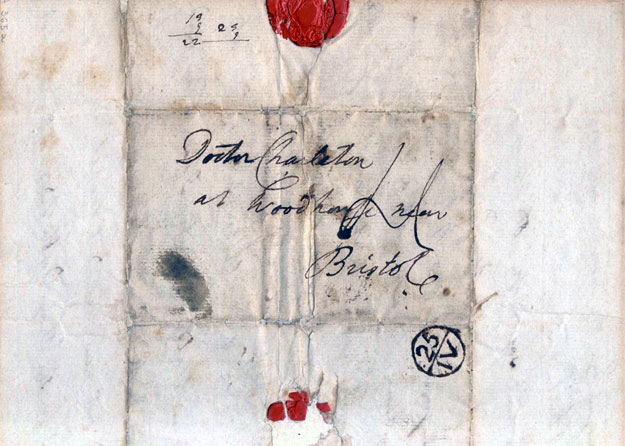 19
22
Doctor Charleton
at Woodhouse near
Bristol
25